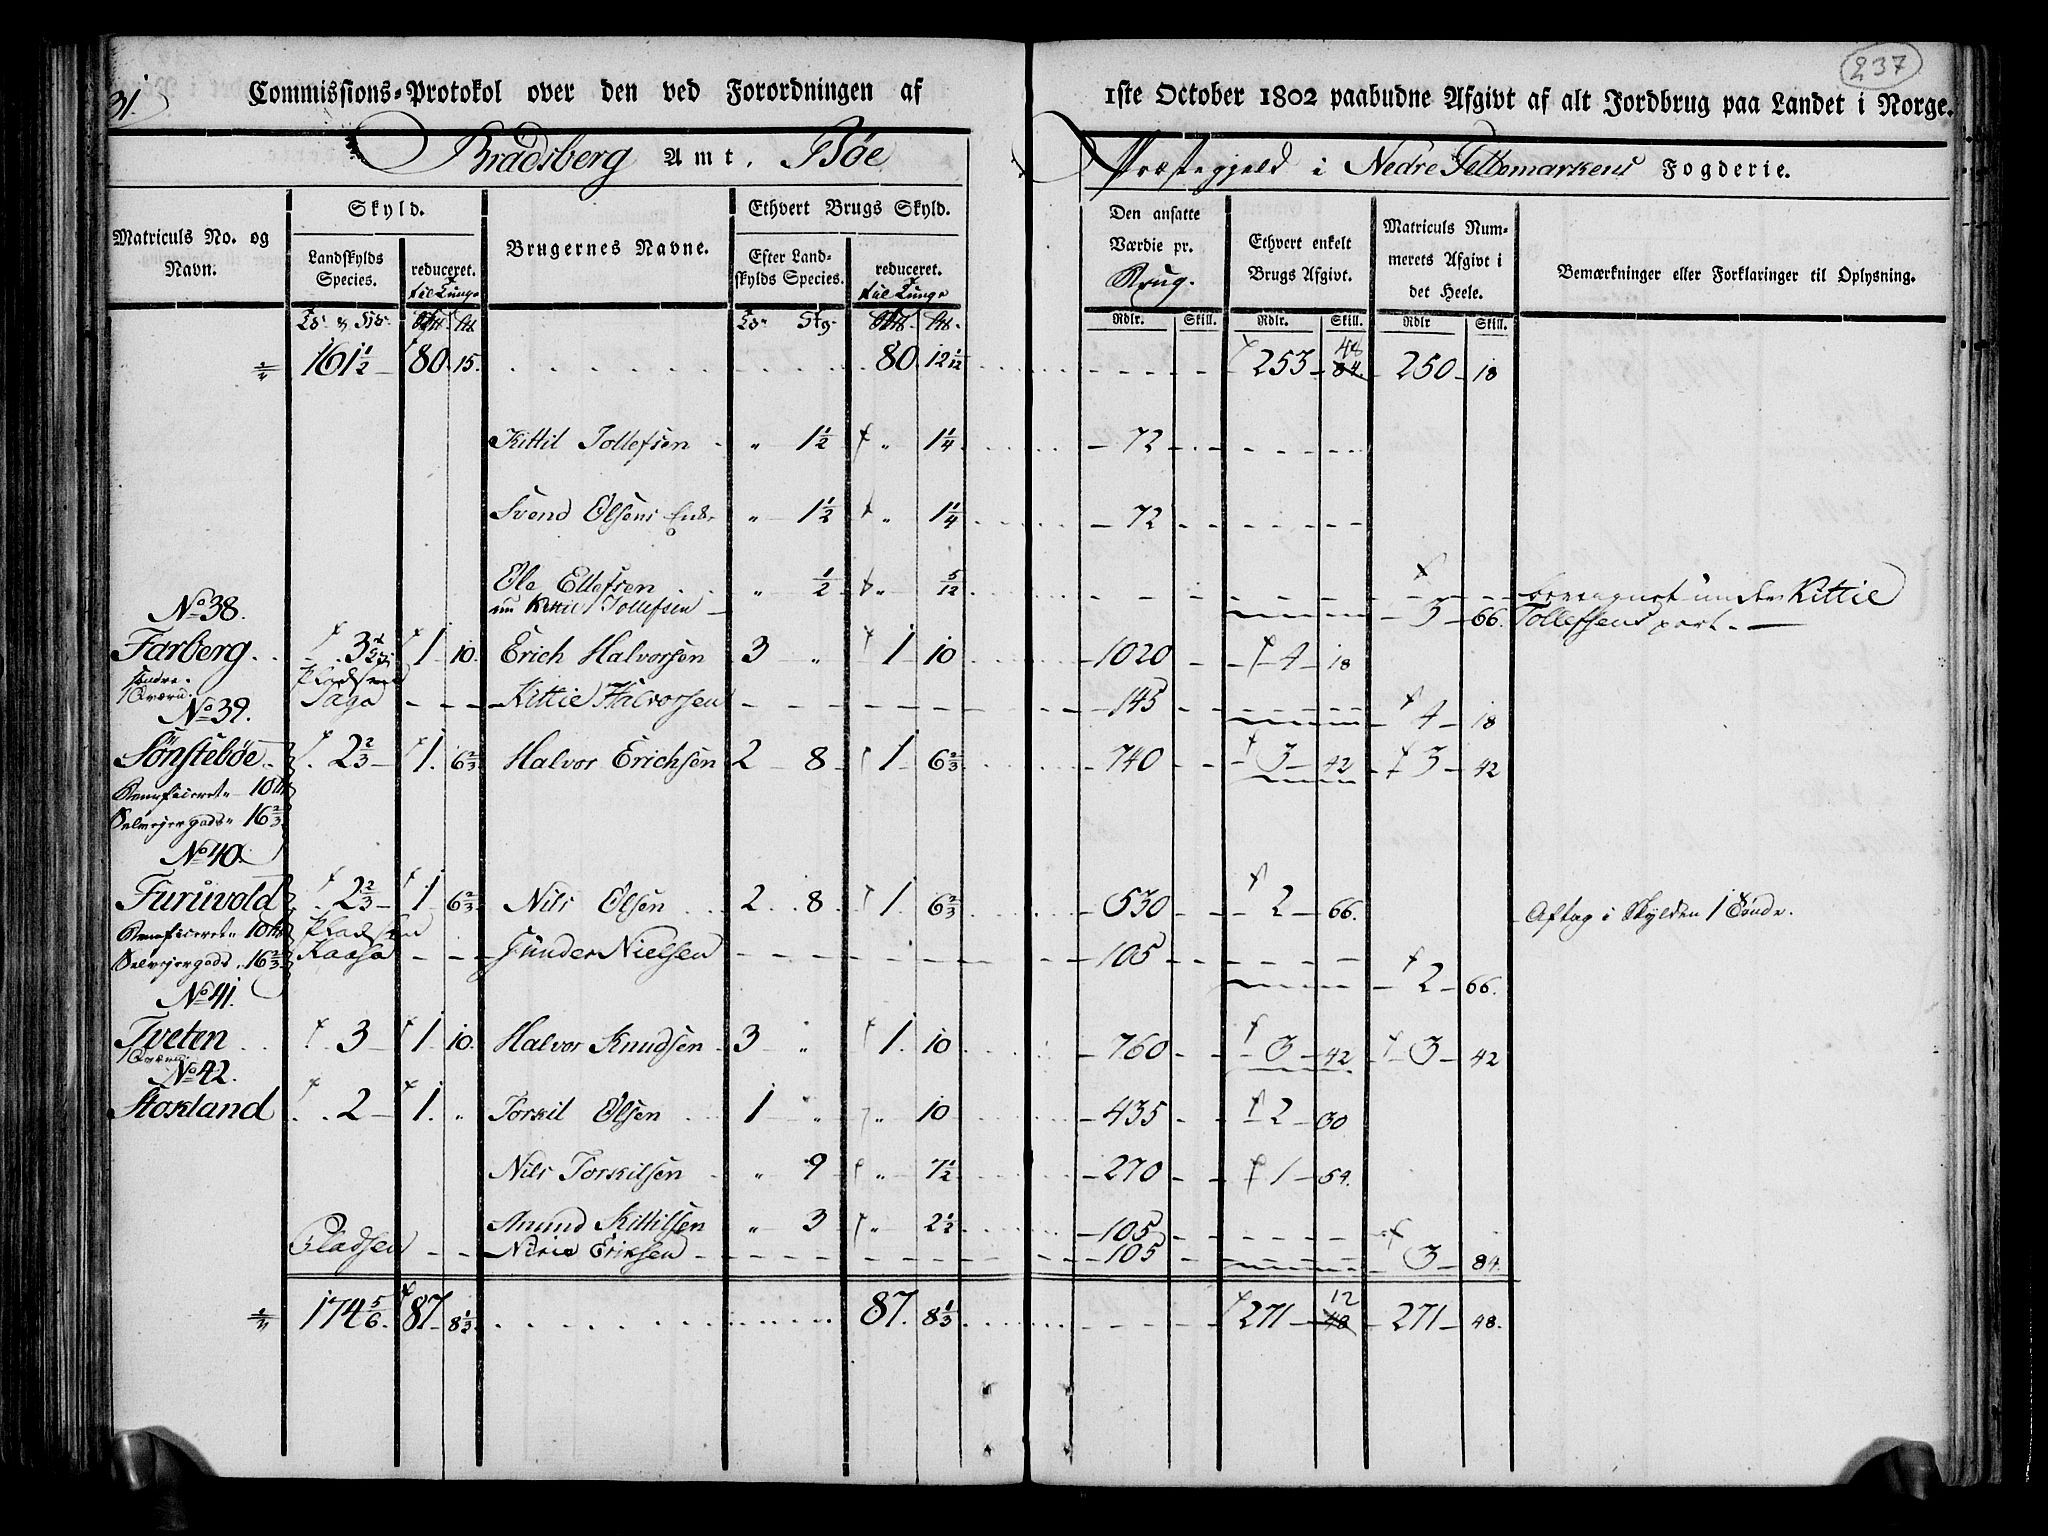 31.
237
Commissions-Protokol over den ved Forordningen af 1ste October 1802 paabudne Afgivt af alt Jordbrug paa Landet i Norge.
Bradsberg Amt. Bøe Præstegjeld i Nedre Tellemarkens Fogderie.
Matriculs No. og Navn.
Skyld.
Landskylds Species.
reduceret. til Tunge
Brugernes Navne.
Ethvert Brugs Skyld.
Efter Landskylds Species.
reduceret. til Tunge
Den ansatte Værdie pr. Brug.
Ethvert enkelt Brugs Afgivt.
Matriculs Nummerets Afgivt i det Heele.
Bemærkninger eller Forklaringer til Oplysning.
Rdlr. Skill. Rdlr. Skill. Rdlr Skill.
161 1/2 80. 15. 80. 12 1/12 253 48 84. 250 18
Kittil Tollefsen " 1 1/2 " 1 1/4 72
Svend Olsens Enke " 1 1/2 " 1 1/4 72
Ole Ellefsen " 1/2 " 5/12
nu Kittil Tollefsen 5 66.
beregnet under Kittil
Tollefsens part.
No 38.
Farberg 3 1 10. Erich Halvorsen 3 " 1 10 1020 4 18
søndre.
1 Qværn. Pladsen
Saga Kittil Halvorsen 145 4 18
No 39.
Sønstebøe 2 2/3 1. 6 2/3 Halvor Erichsen 2 8 1 6 2/3 740 3 42 3 42
Beneficeret 10
Selvejergods 16 2/3
No 40.
Furuvold 2 2/3 1 6 2/3 Nils Olsen 2 8 1 6 2/3 530 2 66.
Aftag i Skylden 1 Tønde.
Beneficeret 10 Pladsen
Selvejergods 16 2/3 Kaasa Gunder Nielsen 105 2 66.
No 41.
Tveten 3 1 10. Halvor Knudsen 3 " 1. 10 760 3 42 3 42
1 Qværn.
No 42.
Stokland 2 1. " Torkil Olsen 1 " " 10 435 2 30
Nils Torkilsen " 9 " 7 1/2 270 1 54.
Amund Kittilsen " 3 " 2 1/2 105
Pladsen Eriksen 105 3 84.
174 5/6 87 8 1/3 87. 8 1/3 271 12 48 271 48.